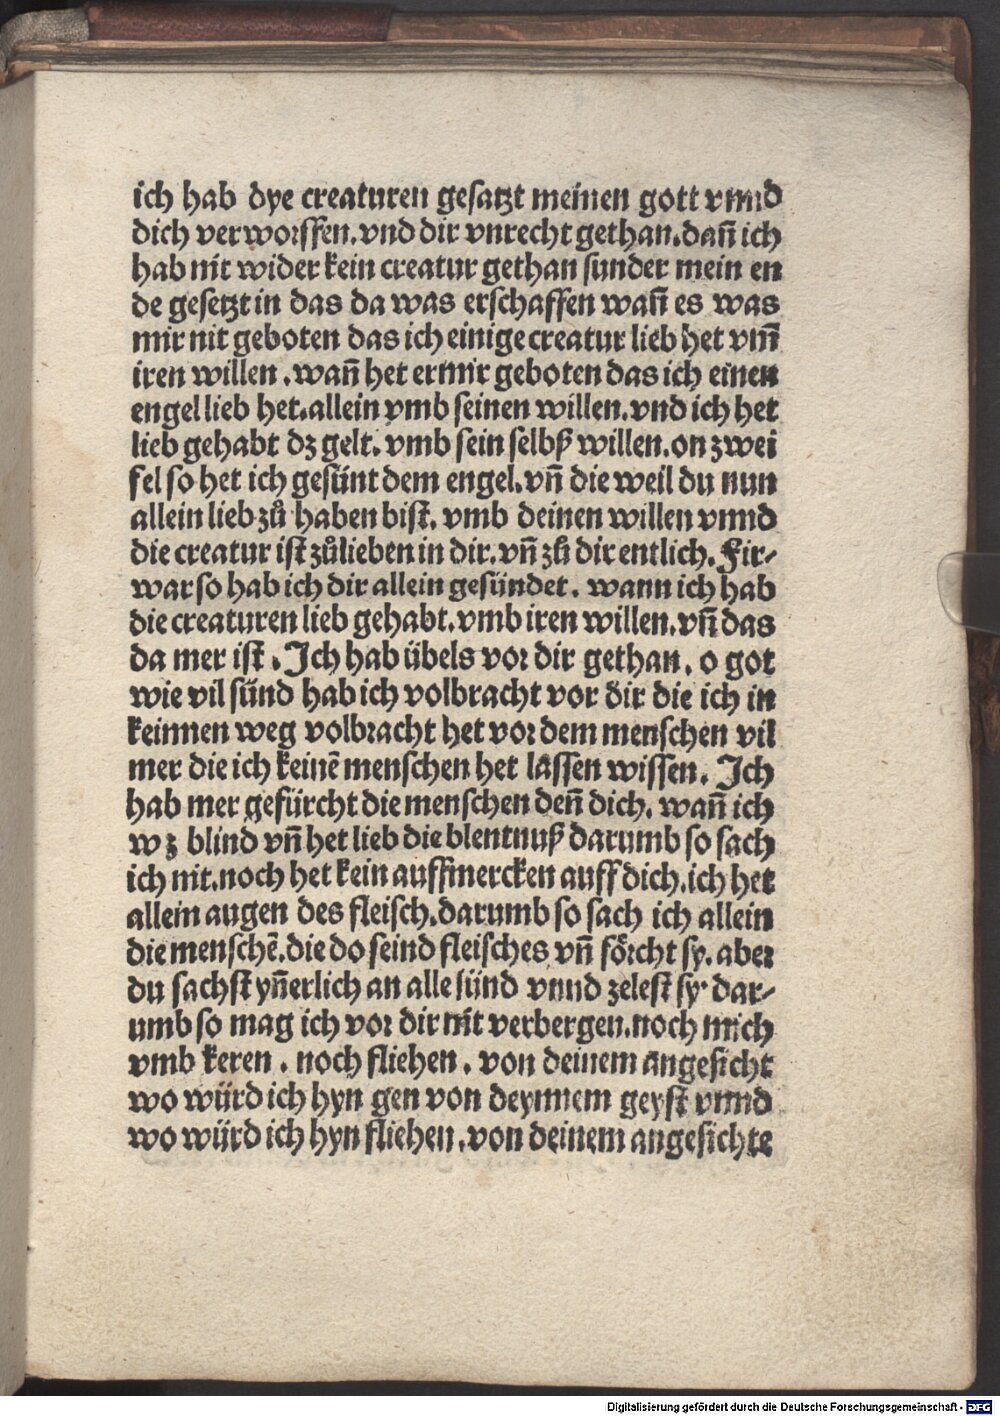 ich hab dye creaturen gesatzt meinen gott vnnd
dich verworffen. vnd dir vnrecht gethan. dañ ich
hab nit wider kein creatur gethan sunder mein en
de gesetzt in das da was erschaffen wañ es was
mir nit geboten das ich einige creatur lieb het vm̄
iren willen. wañ het er mir geboten das ich einen
engel lieb het. allein vmb seinen willen. vnd ich het
lieb gehabt dz gelt. vmb sein selbß willen. on zwei
fel so het ich gesünt dem engel. vñ die weil du nun
allein lieb zů haben bist. vmb deinen willen vnnd
die creatur ist zůlieben in dir. vñ zů dir entlich. Fir⸗
war so hab ich dir allein gesündet. wann ich hab
die creaturen lieb gehabt. vmb iren willen. vñ das
da mer ist. Ich hab übels vor dir gethan. o got
wie vil sünd hab ich volbracht vor dir die ich in
keinnen weg volbracht het vor dem menschen vil
mer die ich keinē menschen het lassen wissen. Ich
hab mer gefürcht die menschen deñ dich. wañ ich
wz blind vñ het lieb die blentnuß darumb so sach
ich nit. noch het kein auffmercken auff dich. ich het
allein augen des fleisch. darumb so sach ich allein
die menschē. die do seind fleisches vñ förcht sy. aber
du sachst yñerlich an alle sünd vnnd zelest sy. dar⸗
umb so mag ich vor dir nit verbergen. noch mich
vmb keren. noch fliehen. von deinem angesicht
wo würd ich hyn gen von deynnem geyst vnnd
wo würd ich hyn fliehen. von deinem angesichte
Digitalisierung gefördert durch die Deutsche Forschungsgemeinschaft - DFG